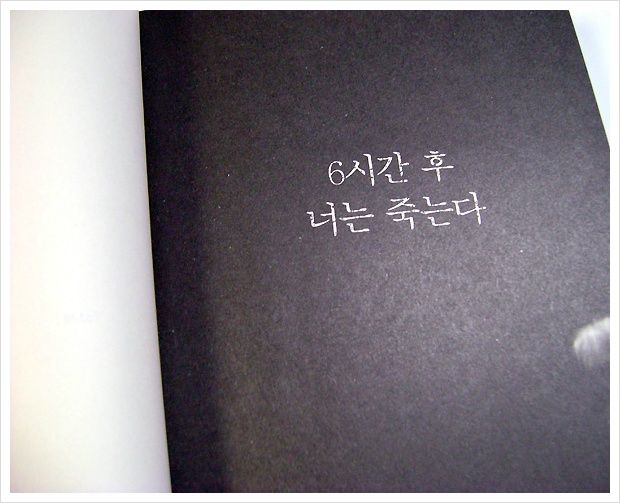 6시간 후
너는 죽는다